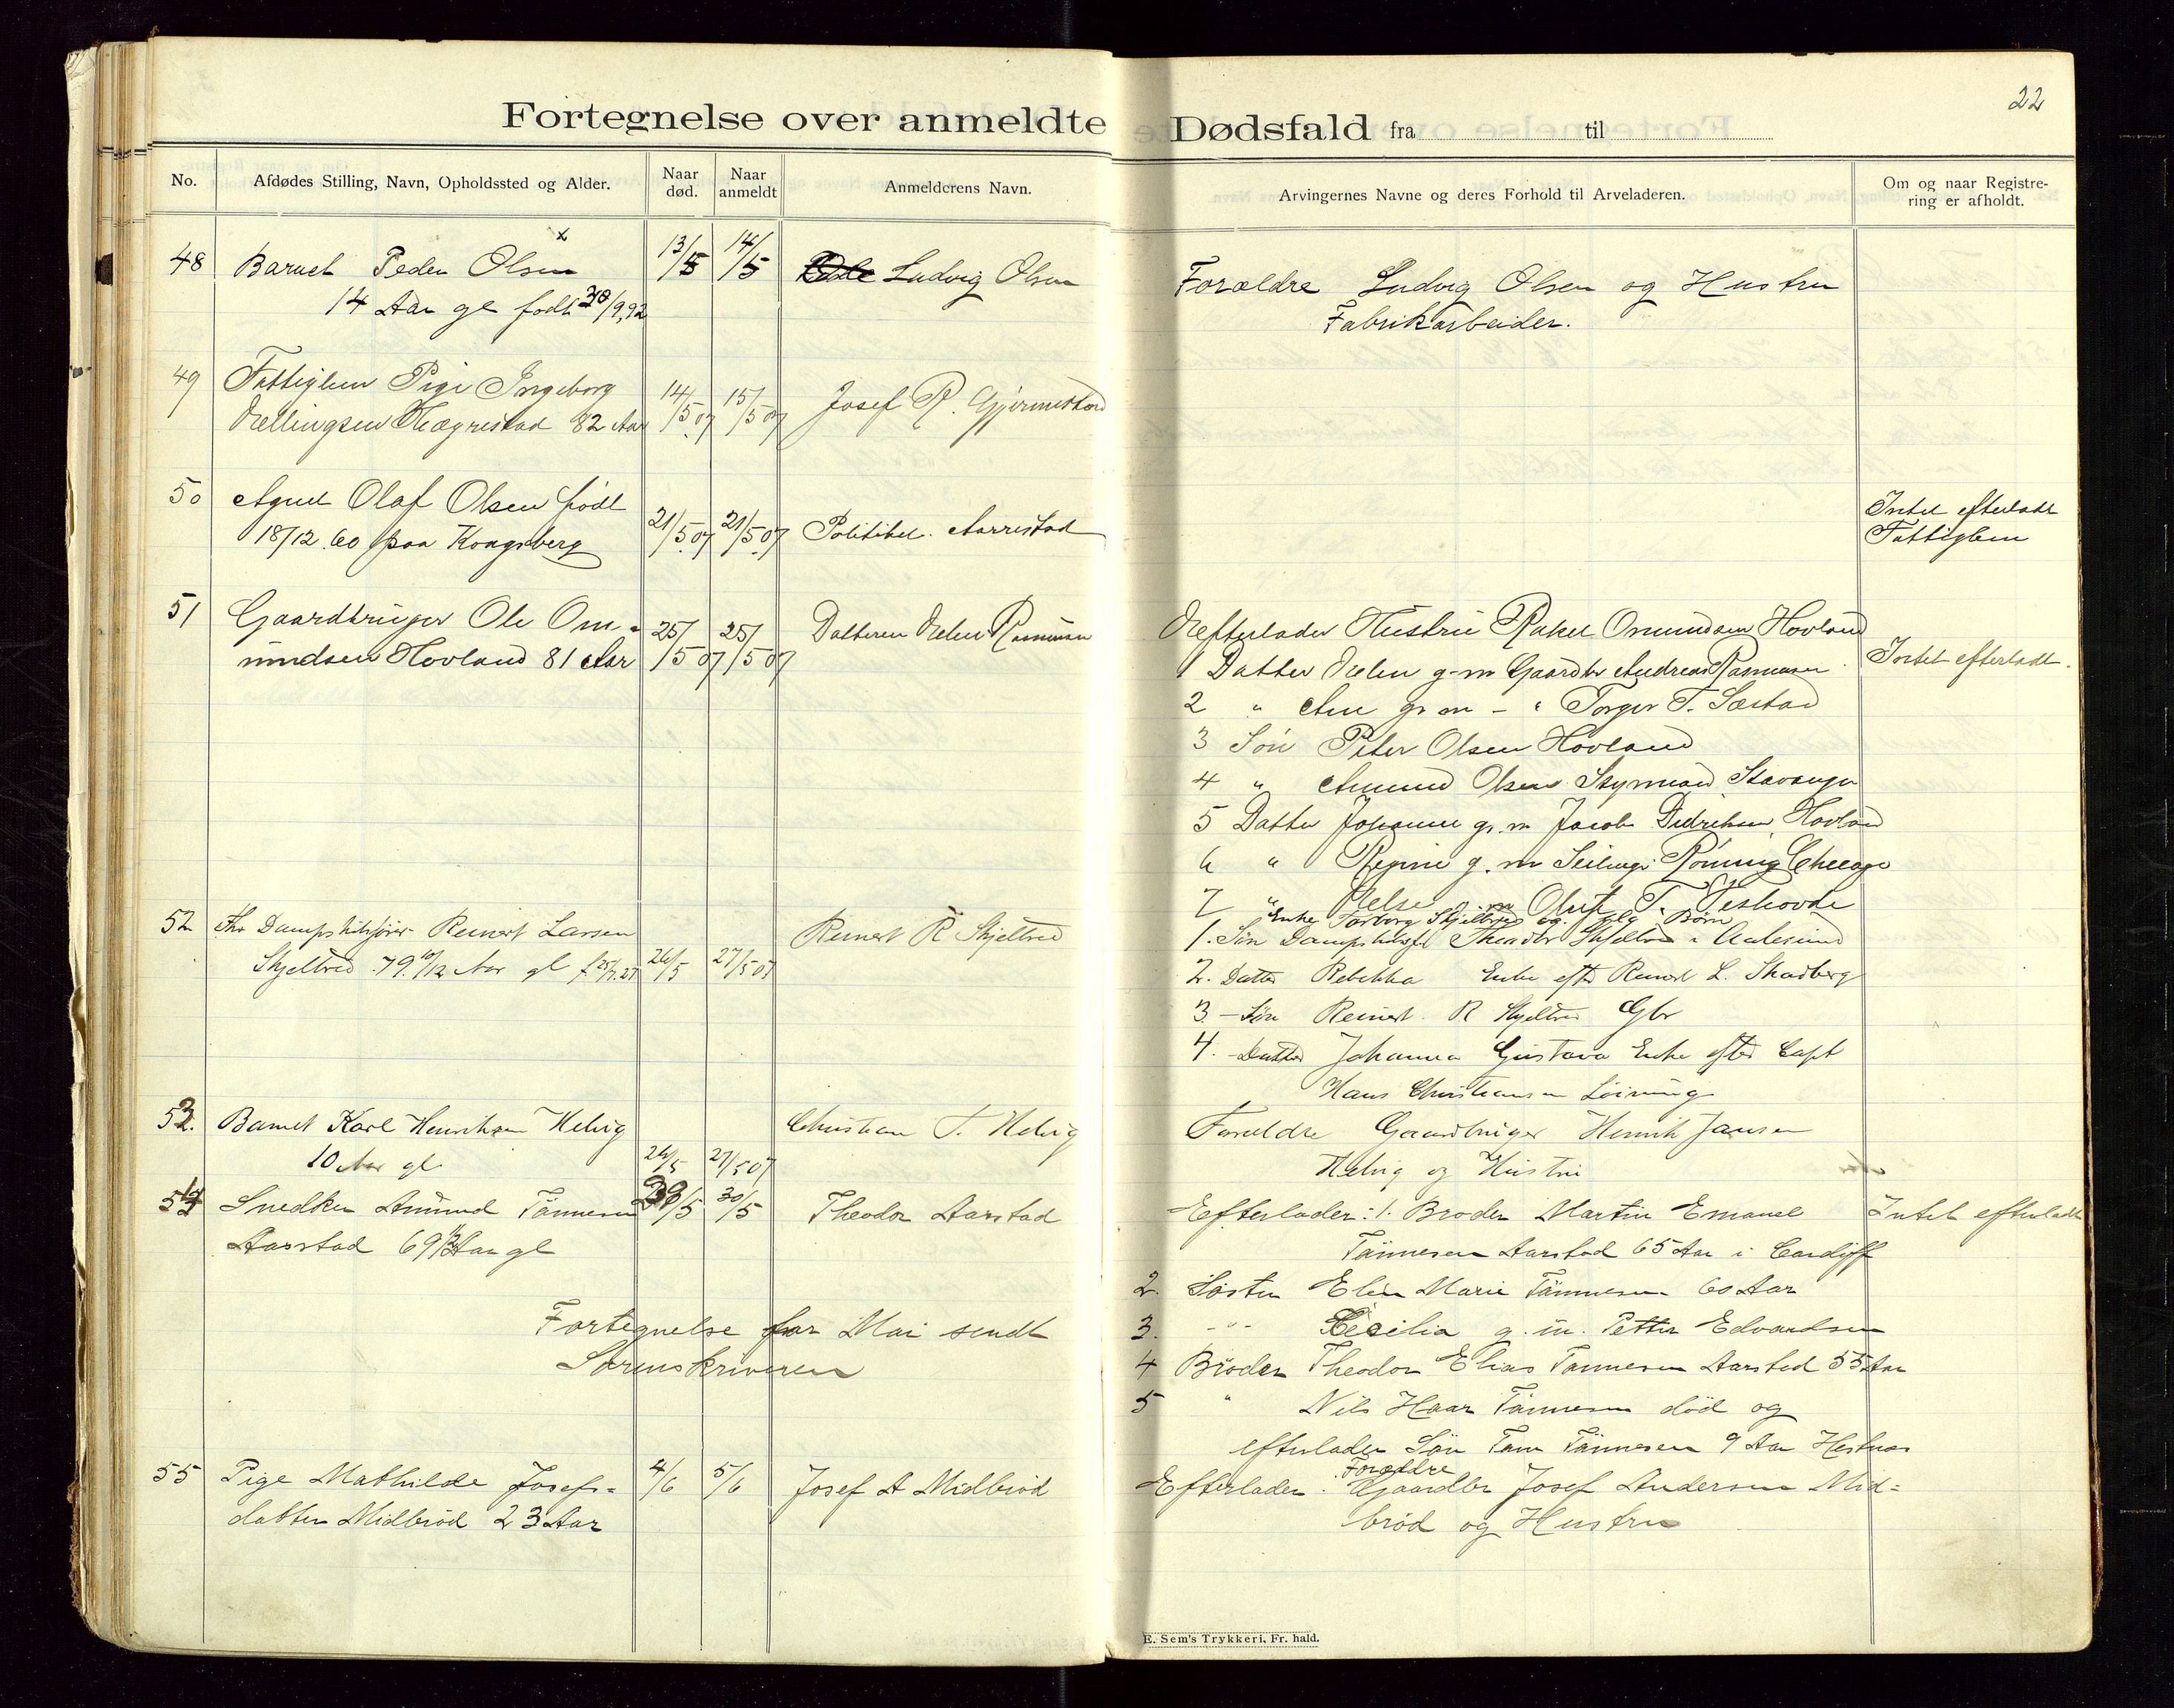 22
Fortegnelse over anmeldte Dødsfald fra til
No.
Afdødes Stilling, Navn, Opholdssted og Alder.
Naar død.
Naar anmeldt
Anmelderens Navn.
Arvingernes Navne og deres Forhold til Arveladeren.
Om og naar Registre-
ring er afholdt.
48 Barnet Peder Olsen x 13/5 14/5 Ludvig Olsen
14 Aar gl født 30/9,92
Forældre Ludvig Olsen og Hustru
Fabrikarbeider.
49 Fattiglem Pige Ingeborg
Ellingsen Hægrestad 82 Aar 14/5 07 15/5 07 Josef R. Gjermestad
50 Agent Olaf Olsen født
18/12.60 paa Kongsberg 21/5 07 21/5 07 Politibet. Aarrestad
Intet efterladt
Fattiglem
51 Gaardbruger Ole Om-
mundsen Hovland 81 Aar 25/5 07 25/5 07 Datteren Elen Rasmusen
Efterlader Hustru Rakel Omundsen Hovland
1 Datter Elen g. m Gaardbr Andreas Rasmusen
Intet efterladt.
2 " Ane g. m - " Torger T. Sæstad
3 Søn Peter Olsen Hovland
4 " Amund Olsen Styrmand Stavanger
5 Datter Johanne g. m Jacob Didriksen Hovland
6 " Regine g. m Rønning Chicago
7 " Else g. m Oluf T.
52 Fhv Dampskibsfører Reinert Larsen
Skjelbred 79. 10/12 Aar gl f. 25/7.27 26/5 27/5 07
Reinert R Skjelbred
Enke Torborg Skjelbred og flg Børn
1. Søn Dampskibsf Theodor Skjelbred i Aalesund
2. Datter Rebekka Enke efter Reinert L. Skadberg
3 - Søn Reinert R Skjelbred Gbr
4. - Datter Johanna Gustava Enke efter Capt
Hans Christiansen Løining
53. Barnet Karl Henriksen Helvig
10 Aar gl. 26/5 27/5 07
Christian T. Helvig
Forældre Gaardbruger Henrik Jansen
Helvig og Hustru
54 Snedker Amund Tønnesen
Aarstad 69 Aar gl
/5 30/5 Theodor Aarstad
Efterlader: 1. Broder Martin Emanuel
Tønnesen Aarstad 65 Aar i Cardiff
Intet efterladt
2. Søster Elen Marie Tønnesen 60 Aar
3. -"- Cecilia g. m. Petter Edvardsen
4 Broder Theodor Elias Tønnesen Aarstad 55 Aar
5 " Nils Haar Tønnesen død og
efterlader Søn Tønnesen 9 Aar Hestnæs
Fortegnelse for Mai sendt
Sorenskriveren
55 Pige Mathilde Josefs-
datter Midbrød 23 Aar
4/6 5/6 Josef A Midbrød
Forældre
Efterlader. Gaardbr Josef Andersen Mid-
brød og Hustru
E. Sem's Trykkeri, Fr. hald.